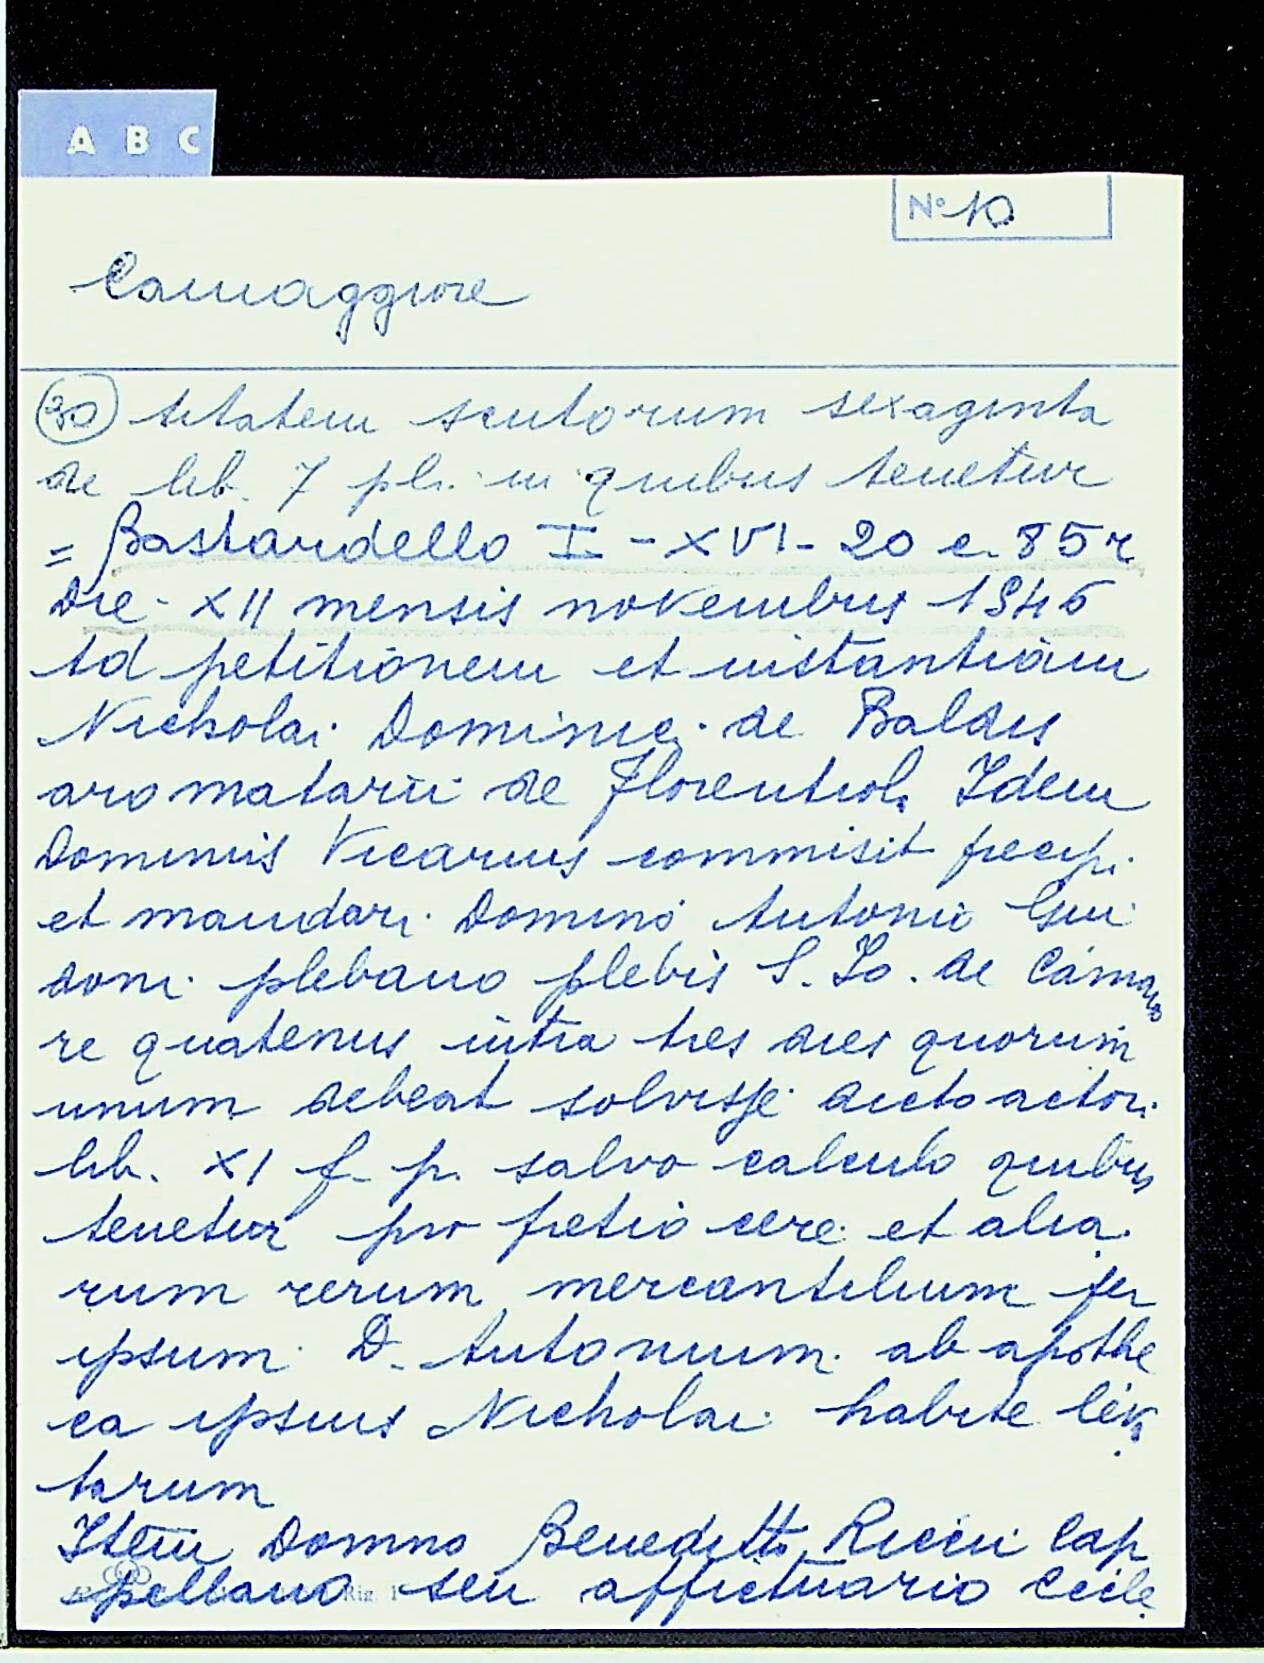 A B C
N° 10
Camaggiore
30 titatem scutorum sexaginta
de lib. 7 pl. in quibus tenetur
= Bastardello I - XVI - 20 c. 85 r
Die XII mensis novembris 1546
Ad petitionem et instantiam
Nicholai Dominici de Baldis
aromatarii de Florentiola Idem
Dominus Vicarius commisit precipi
et mandari Domino Antonio Gui
doni plebano plebis S. Io. de Camaio
re quatenus intra tres dies quorum
unum debeat solvisse dicto actori
lib. XI f. p. salvo calculo quibus
tenetur pro pretio cere et alia
rum rerum mercantilium per
ipsum D. Antonium ab apothe
ca ipsius Nicholai habite
tarum
Item Domno Benedetto Riccii Cap
pellano seu affictuario